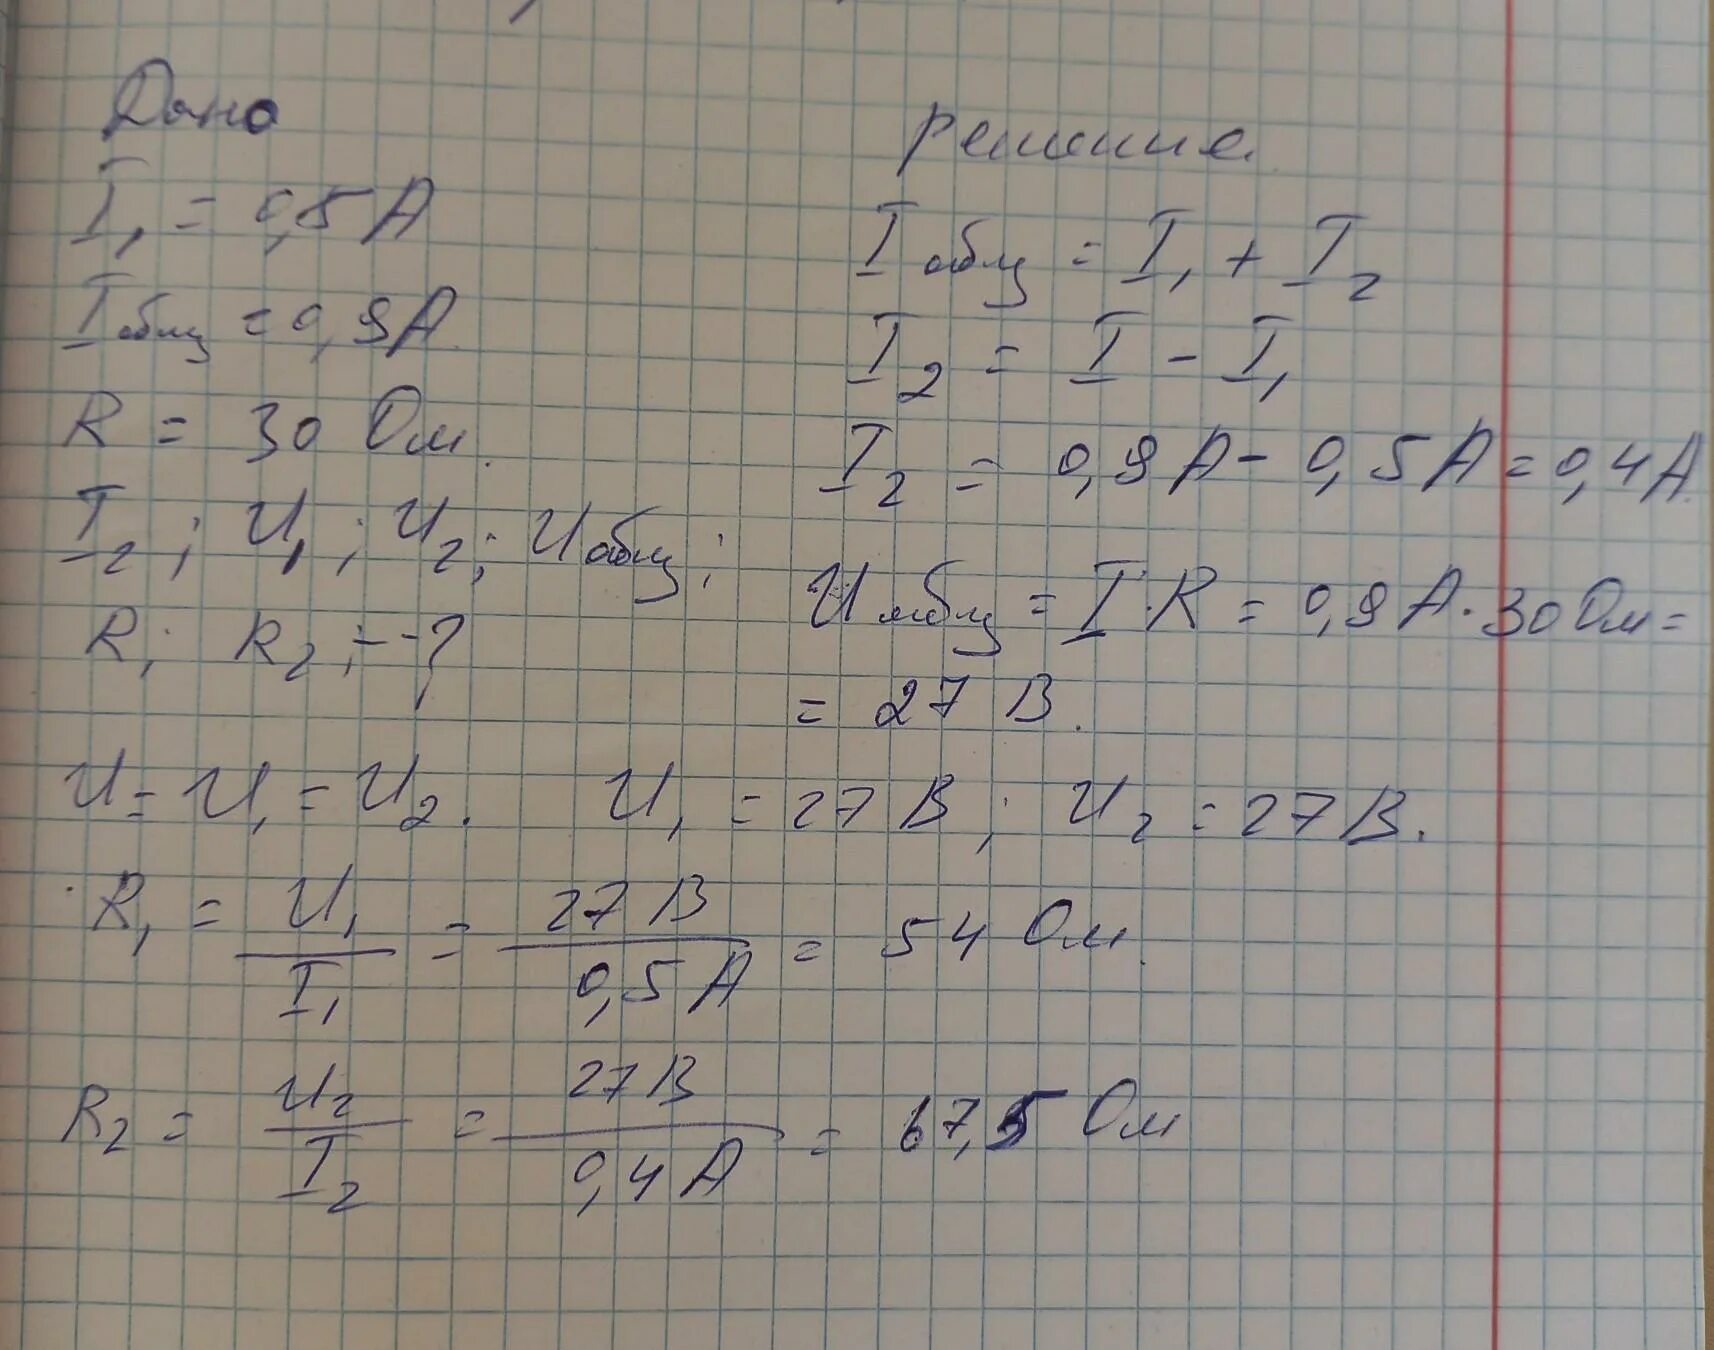 Дано
I₁ = 0,5 А
Iобщ = 0,9 А
R = 30 Ом.
I₂ ; U₁ ; U₂ ; Uобщ ;
R₁ R₂ ; - ?
Решение.
Iобщ = I₁ + I₂
I₂ = I - I₁
I₂ = 0,9 А - 0,5 А = 0,4 А
Uобщ = I · R = 0,9 А · 30 Ом =
= 27 В.
U = U₁ = U₂. U₁ = 27 В ; U₂ = 27 В.
R₁ = U₁ / I₁ = 27 В / 0,5 А = 54 Ом
R₂ = U₂ / I₂ = 27 В / 0,4 А = 67,5 Ом